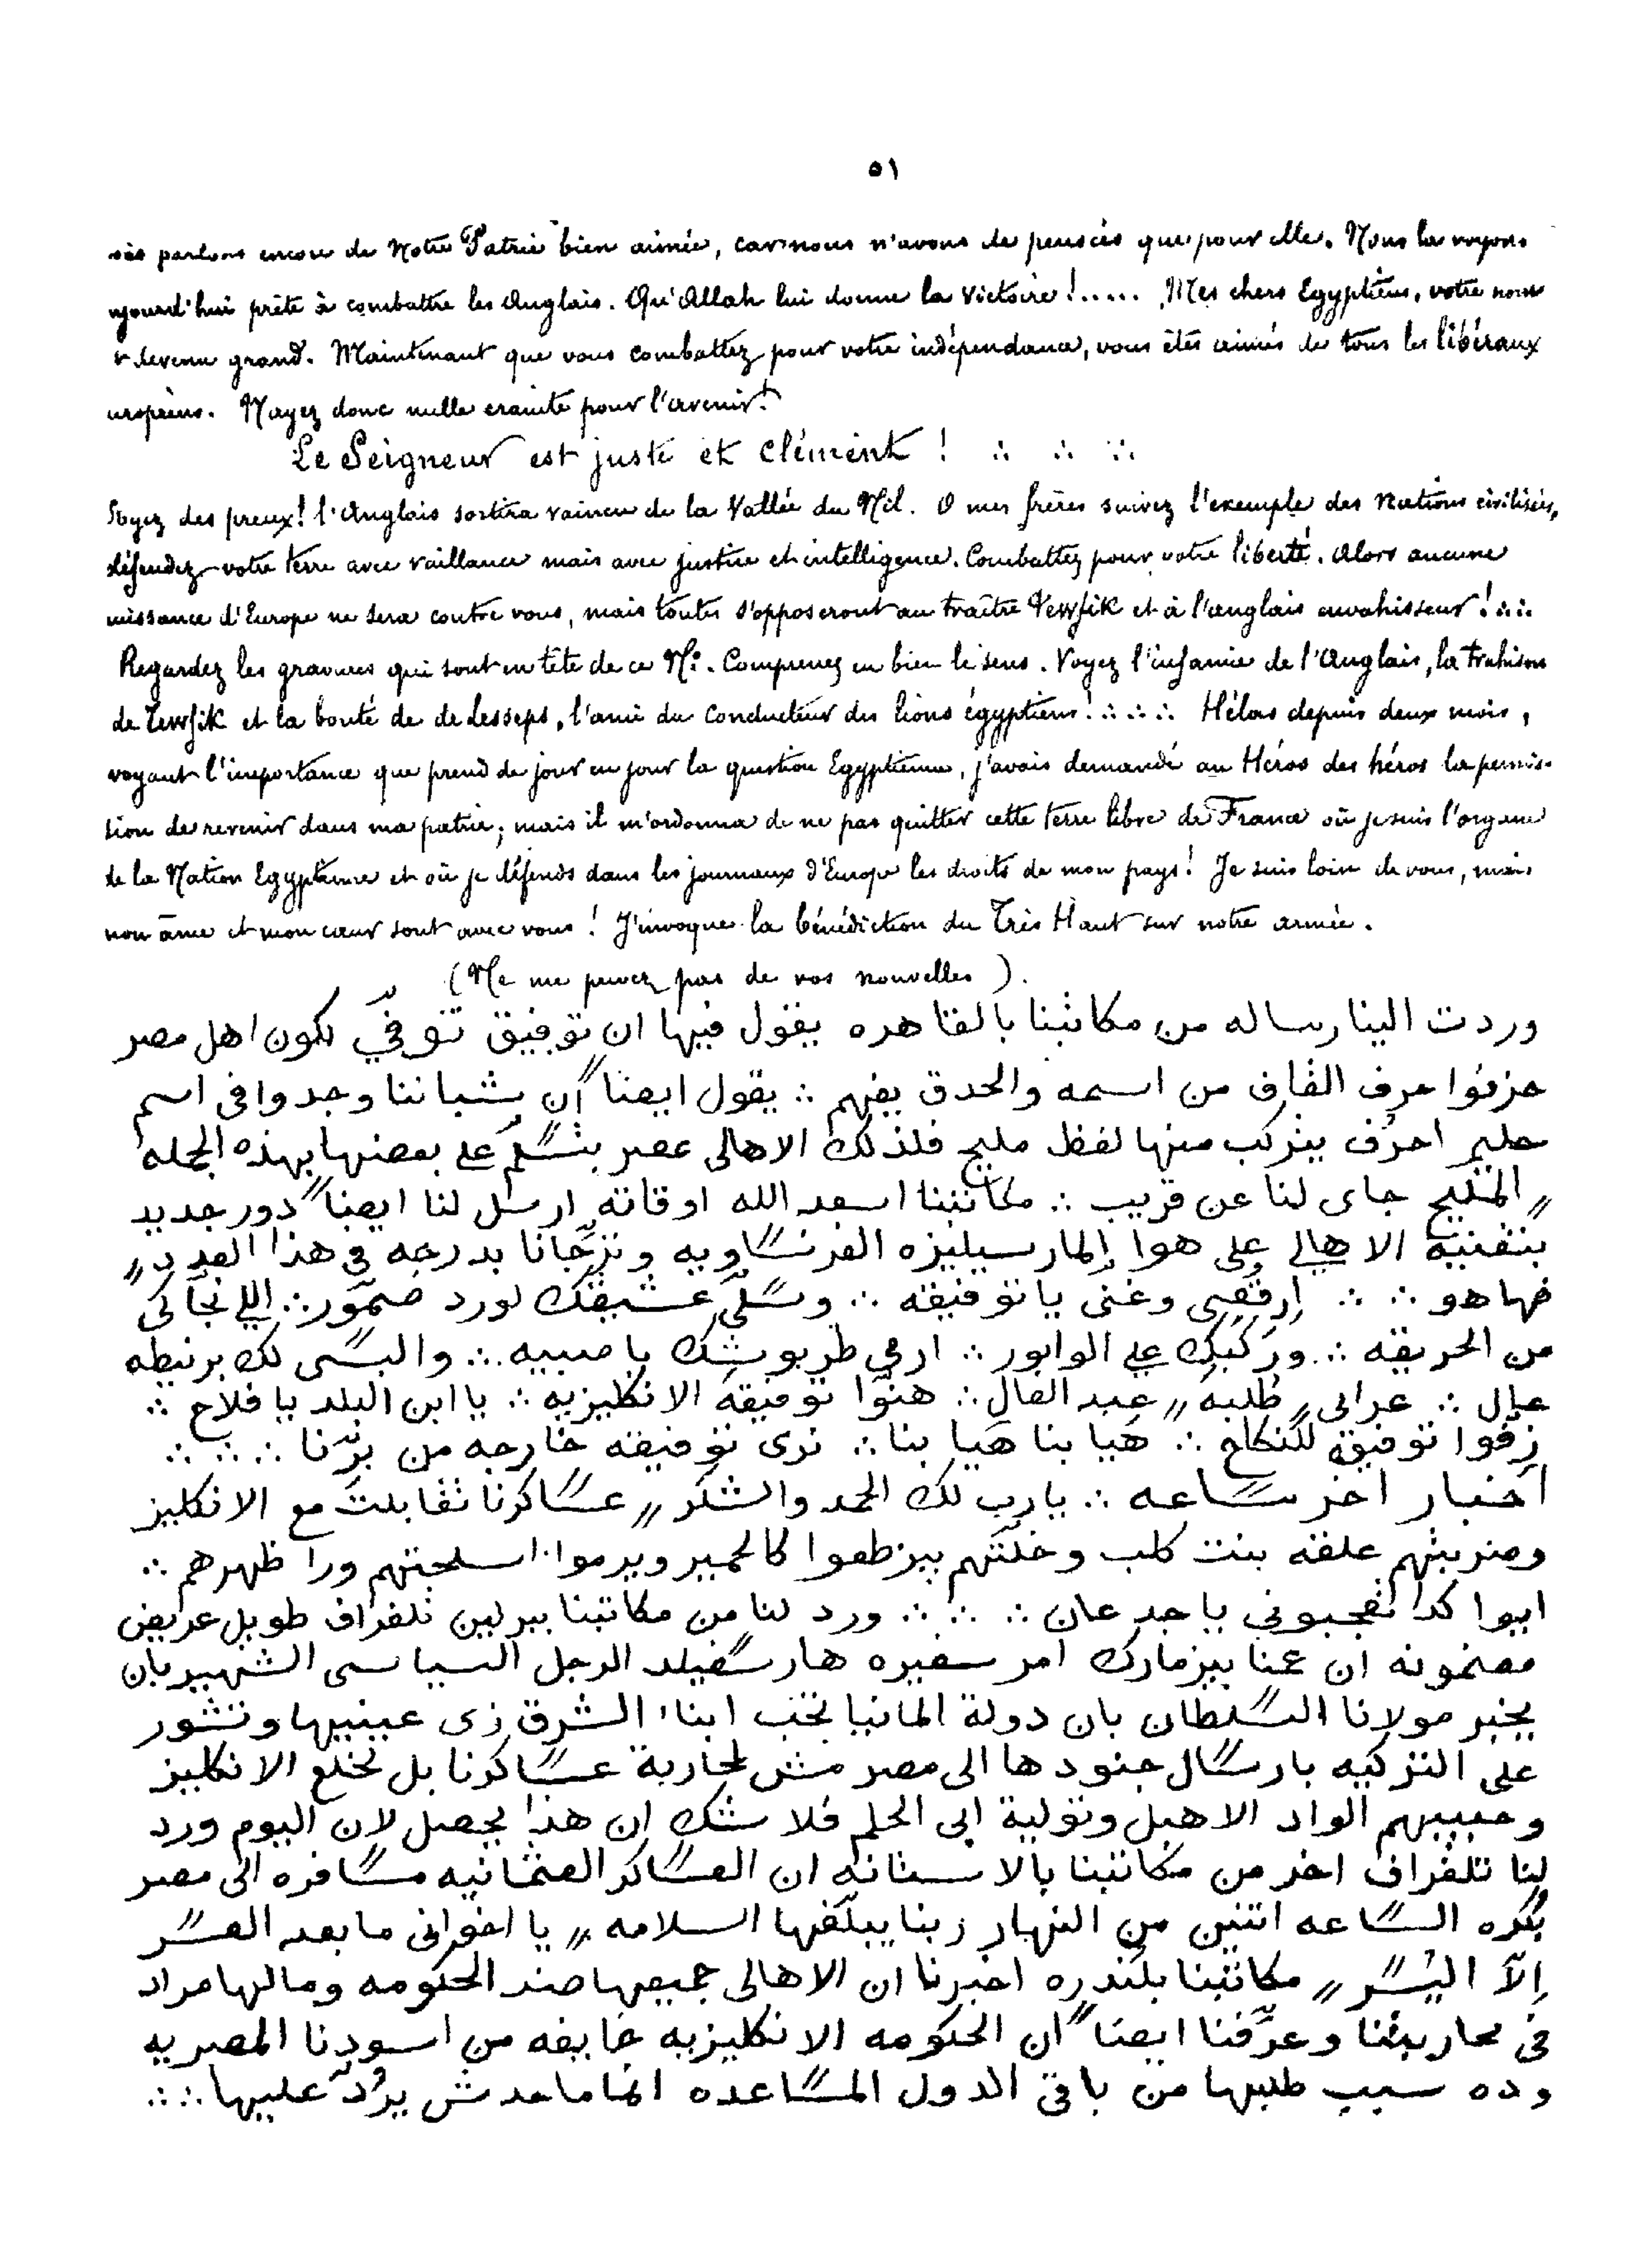 ٥١
parlons encore de Notre Patrie bien aimée, car nous n'avons de pensées que pour elle. Nous la voyons
ujourd'hui prête à combattre les Anglais. Qu'Allah lui donne la victoire !..... Mes chers Egyptiens, votre nom
devenu grand. Maintenant que vous combattez pour votre indépendance, vous êtes aimés de tous les libéraux
uropéens. N'ayez donc nulle crainte pour l'avenir!
Le Seigneur est juste et clément ! ∴ ∴ ∵
Soyez des preux! l'Anglais sortira vaincu de la Vallée du Nil. O mes frères suivez l'exemple des Nations civilisées,
défendez votre terre avec vaillance mais avec justice et intelligence. Combattez pour votre liberté. Alors aucune
uissance d'Europe ne sera contre vous, mais toutes s'opposeront au traître Tewfik et à l'anglais envahisseur ! ∴
Regardez les gravures qui sont en tête de ce N°. Comprenez en bien le sens. Voyez l'infamie de l'Anglais, la trahison
de Tewfik et la bonté de de Lesseps, l'ami du conducteur des lions égyptiens! ∴ ∴ Hélas depuis deux mois,
voyant l'importance que prend de jour en jour la question Egyptienne, j'avais demandé au Héros des héros la permis-
sion de revenir dans ma patrie; mais il m'ordonna de ne pas quitter cette terre libre de France où je suis l'organe
de la Nation Egyptienne et où je défends dans les journaux d'Europe les droits de mon pays! Je suis loin de vous, mais
mon âme et mon cœur sont avec vous ! J'invoque la bénédiction du Très Haut sur notre armée.
(Ne me privez pas de vos nouvelles).
وردت الينا رساله من مكاتبنا بالقاهره يقول فيها ان توفيق توفيّ لكون اهل مصر
حزفوا حرف القاف من اسمه والحدق يفهم ∴ يقول ايضاً ان شباننا وجدوا فى اسم
حليم احرُف يتركب منها لفظ مليح فلذلك الاهالى عصر بتسلّم على بعضها بهذه الجمله
〃 المليح جاى لنا عن قريب ∴ مكاتبنا اسعد الله اوقاته ارسل لنا ايضاً دور جديد
بتغنيه الاهالى على هوا المارسيليزه الفرنساويه وترجّانا بدرجه فى هذا العدد 〃
فها هو ∴ ∴ ارقصى وغنى يا توفيقه ∴ وسلّى عشيقك لورد صمّور ∴ اللى نجّاكى
من الحريقه ∴ وركبك على الوابور ∴ ارمى طربوشك يا صبيه ∴ والبسى لك برنيطه
عال ∴ عرابى 〃 طلبه 〃 عبد العال ∴ هنوّا توفيقة الانكليزيه ∴ يا ابن البلد يا فلاح ∴
زفّوا توفيقه للنكاح ∴ هيا بنا هيا بنا ∴ نرى توفيقه خارجه من برّنا ∴ ∴ ∴
اخبار اخر ساعه ∴ يارب لك الحمد والشكر 〃 عساكرنا تقابلت مع الانكليز
وضربتهم علقه بنت كلب وخلّتهم بيزطعوا كالحمير ويرموا اسلحتهم ورا ظهرهم ∴
ايوا كدا تعجبونى يا جدعان ∴ ∴ ∴ ورد لنا من مكاتبنا ببرلين تلغراف طويل عريض
مضمونه ان عمنا بيزمارك امر سفيره هارسفيلد الرجل السياسى الشهير بان
يخبر مولانا السلطان بان دولة المانيا تحب ابناء الشرق زى عينيها وتشور
على التركيه بارسال جنودها الى مصر مش لمحاربة عساكرنا بل لخلع الانكليز
وحبيبهم الواد الاهبل وتولية ابى الحلم فلا شك ان هذا يحصل لان اليوم ورد
لنا تلغراف اخر من مكاتبنا بالاستانه ان العساكر العثمانيه مسافره الى مصر
بكره الساعه اتنين من النهار ربنا يبلّغها السلامه 〃 يا اخوانى ما بعد العسر
اِلّا اليُسر 〃 مكاتبنا بلندره اخبرنا ان الاهالى جميعها ضد الحكومه ومالها مراد
فى محاربتنا وعرّفنا ايضاً ان الحكومه الانكليزيه خايفه من اسودنا المصريه
وده سبب طلبها من باقى الدول المساعده انما ماحدش يرُدّ عليها ∴ ∴